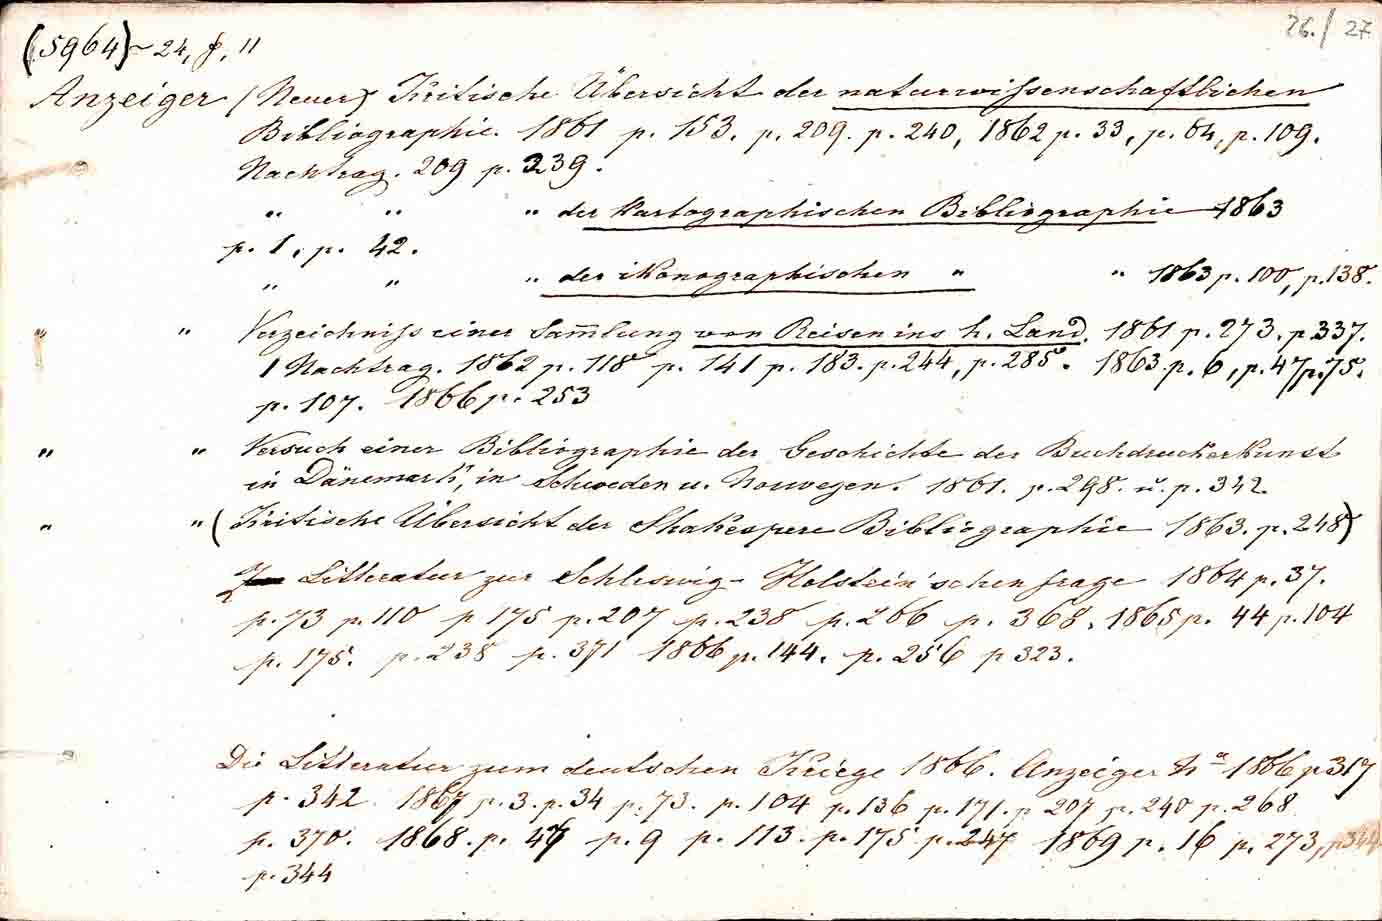 26./27
(5964) ~ 24, f, 11
Anzeiger (Neuer) Kritische Übersicht der naturwissenschaftlichen
Bibliographie. 1861 p. 153. p. 209. p. 240, 1862 p. 33, p. 64, p. 109.
Nachtrag. 209 p. 239.
" " " der Kartographischen Bibliographie 1863
p. 1, p. 42.
" " " der ikonographischen " " 1863 p. 100, p. 138.
" " Verzeichniss einer Sam̅lung von Reisen ins h. Land. 1861 p. 273. p. 337.
1 Nachtrag. 1862 p. 118 p. 141 p. 183. p. 244, p. 285. 1863. p. 6, p. 47, p. 75.
p. 107. 1866 p. 253
" " Versuch einer Bibliographie der Geschichte der Buchdruckerkunst
in Dänemark, in Schweden u. Norwegen. 1861. p. 298. u. p. 342
" " (Kritische Übersicht der Shakespere Bibliographie 1863. p. 248)
Litteratur zur Schleswig-Holstein'schen frage 1864 p. 37.
p. 73 p. 110 p 175 p. 207 p. 238 p. 266 p. 368. 1865 p. 44 p. 104
p. 175. p. 238 p. 371 1866 p. 144. p. 256 p 323.
Die Litteratur zum deutschen Kriege 1866. Anzeiger 1866 p 317
p. 342. 1867 p. 3. p. 34 p. 73. p. 104 p. 136 p. 171. p 207 p. 240 p. 268
p. 370. 1868. p. p. 9 p. 113. p. 175 p. 247 1869 p. 16 p. 273, p 344
p. 344